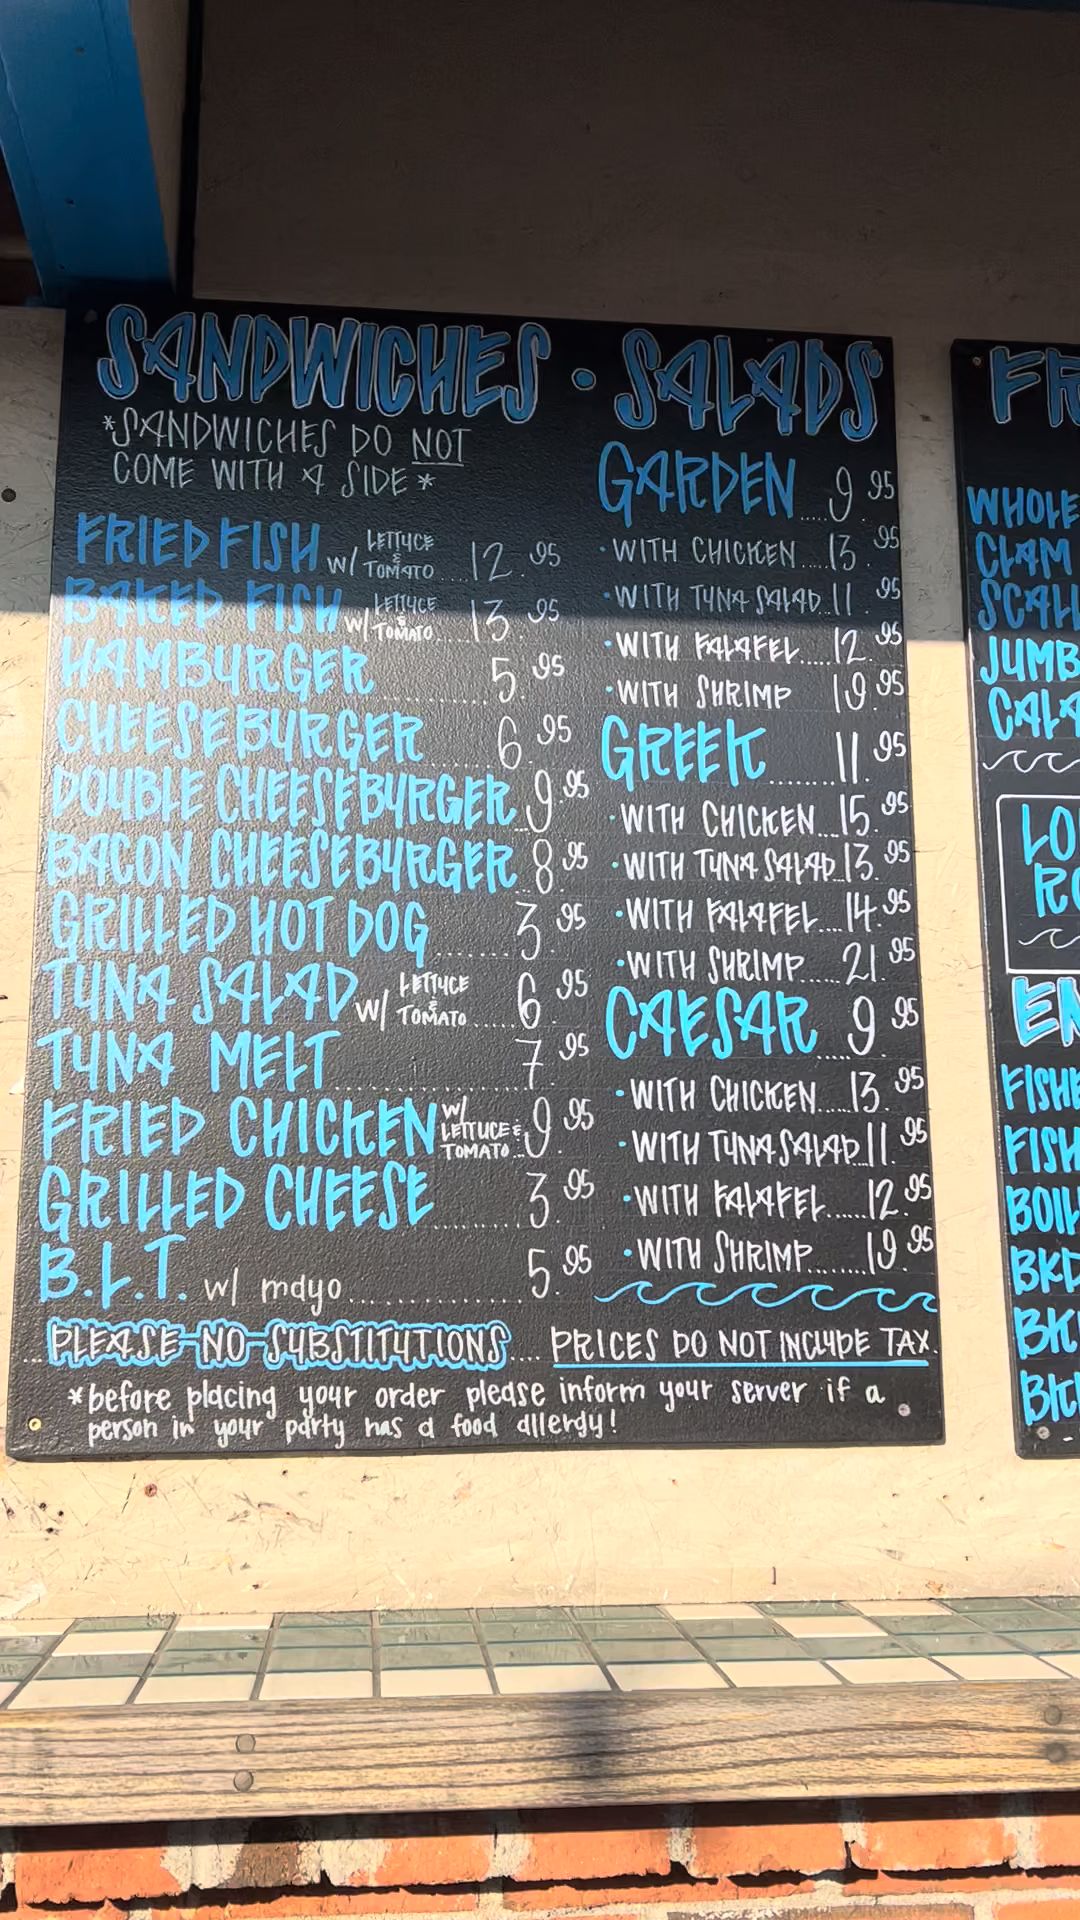 SANDWICHES • SALADS
*SANDWICHES DO NOT
COME WITH A SIDE*
FRIED FISH w/ LETTUCE & TOMATO....12.95
BAKED FISH w/ LETTUCE & TOMATO....13.95
HAMBURGER..........5.95
CHEESEBURGER........6.95
DOUBLE CHEESEBURGER..9.95
BACON CHEESEBURGER..8.95
GRILLED HOT DOG........3.95
TUNA SALAD w/ LETTUCE & TOMATO.....6.95
TUNA MELT................7.95
FRIED CHICKEN w/ LETTUCE & TOMATO...9.95
GRILLED CHEESE........3.95
B.L.T. w/ mayo..............5.95
GARDEN....9.95
•WITH CHICKEN...13.95
•WITH TUNA SALAD..11.95
•WITH FALAFEL.....12.95
•WITH SHRIMP 19.95
GREEK.......11.95
•WITH CHICKEN...15.95
•WITH TUNA SALAD..13.95
•WITH FALAFEL....14.95
•WITH SHRIMP.....21.95
CAESAR.....9.95
•WITH CHICKEN.....13.95
•WITH TUNA SALAD..11.95
•WITH FALAFEL......12.95
•WITH SHRIMP........19.95
...PLEASE-NO-SUBSTITUTIONS.... PRICES DO NOT INCLUDE TAX.
*before placing your order please inform your server if a
person in your party has a food allergy!
WHOLE
CLAM
JUMB
LO
RO
EN
FISH